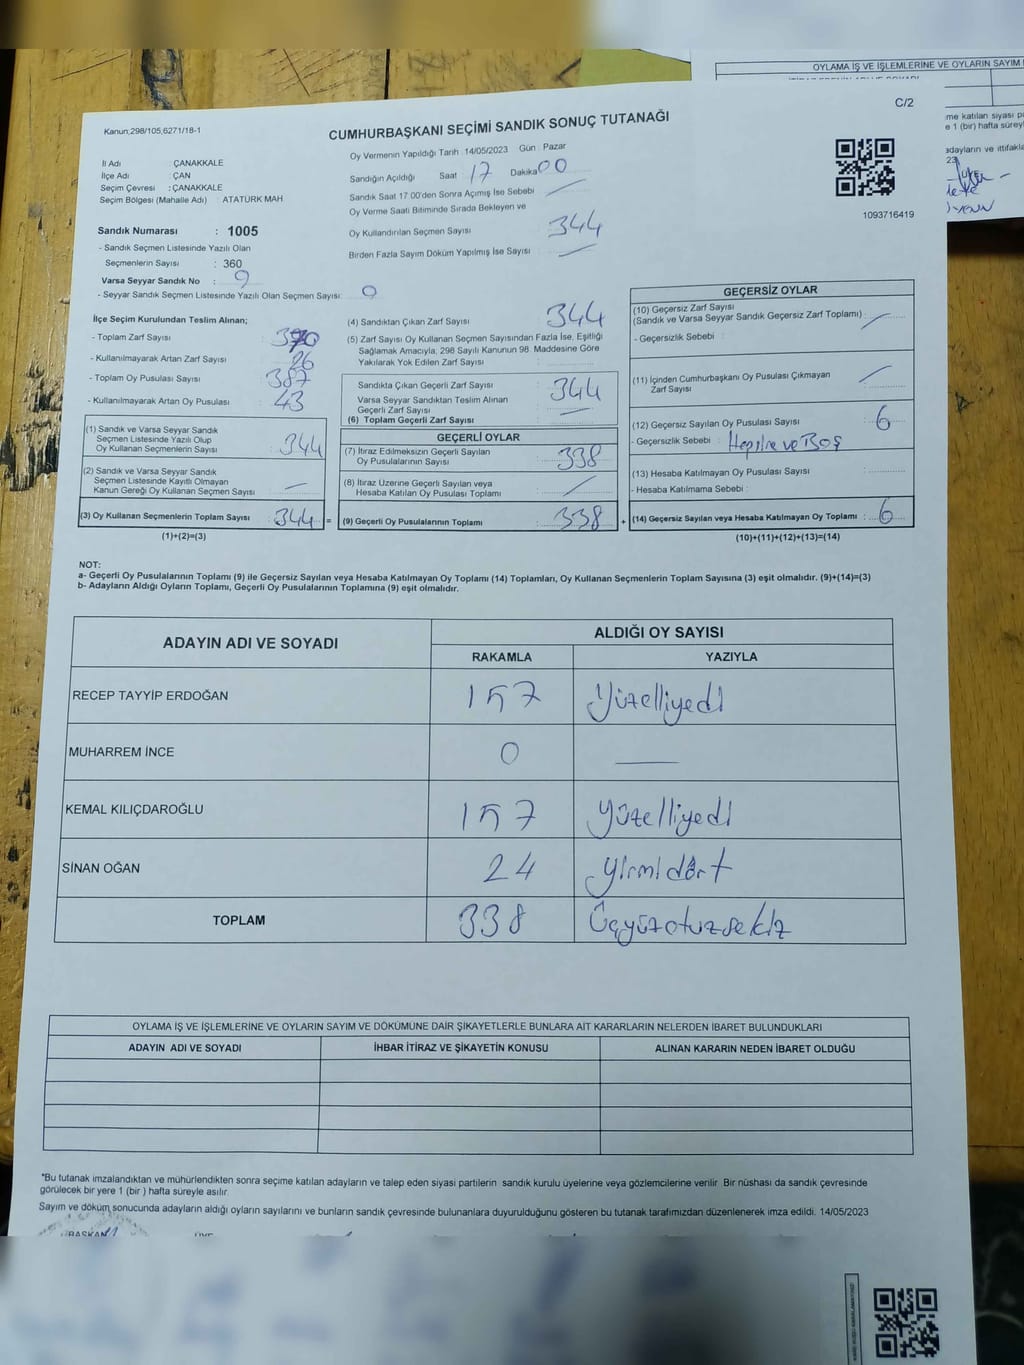 OYLAMA İŞ VE İŞLEMLERİNE VE OYLARIN SAYIM
C/2
Kanun,298/105,6271/18-1
CUMHURBAŞKANI SEÇİMİ SANDIK SONUÇ TUTANAĞI
me katılan siyasi
e 1 (bir) hafta süreyl
adayların ve ittifakla
İl Adı : ÇANAKKALE
İlçe Adı : ÇAN
Seçim Çevresi : ÇANAKKALE
Seçim Bölgesi (Mahalle Adı) : ATATÜRK MAH
Oy Vermenin Yapıldığı Tarih 14/05/2023 Gün : Pazar
Sandığın Açıldığı Saat 17 Dakika 00
Sandık Saat 17 00'den Sonra Açımış İse Sebebi
Oy Verme Saati Bitiminde Sırada Bekleyen ve
Oy Kullandırılan Seçmen Sayısı 344
Birden Fazla Sayım Döküm Yapılmış İse Sayısı
1093716419
Sandık Numarası : 1005
- Sandık Seçmen Listesinde Yazılı Olan
Seçmenlerin Sayısı : 360
Varsa Seyyar Sandık No :
- Seyyar Sandık Seçmen Listesinde Yazılı Olan Seçmen Sayısı: 0
İlçe Seçim Kurulundan Teslim Alınan;
- Toplam Zarf Sayısı :
- Kullanılmayarak Artan Zarf Sayısı : 26
- Toplam Oy Pusulası Sayısı : 387
- Kullanılmayarak Artan Oy Pusulası : 43
(1) Sandık ve Varsa Seyyar Sandık
Seçmen Listesinde Yazılı Olup
Oy Kullanan Seçmenlerin Sayısı : 344
(2) Sandık ve Varsa Seyyar Sandık
Seçmen Listesinde Kayıtlı Olmayan
Kanun Gereği Oy Kullanan Seçmen Sayısı :
(3) Oy Kullanan Seçmenlerin Toplam Sayısı : 344 =
(1)+(2)=(3)
(4) Sandıktan Çıkan Zarf Sayısı : 344
(5) Zarf Sayısı Oy Kullanan Seçmen Sayısından Fazla İse, Eşitliği
Sağlamak Amacıyla, 298 Sayılı Kanunun 98. Maddesine Göre
Yakılarak Yok Edilen Zarf Sayısı :
Sandıkta Çıkan Geçerli Zarf Sayısı : 344
Varsa Seyyar Sandıktan Teslim Alınan
Geçerli Zarf Sayısı
(6) Toplam Geçerli Zarf Sayısı :
GEÇERLİ OYLAR
(7) İtiraz Edilmeksizin Geçerli Sayılan
Oy Pusulalarının Sayısı : 338
(8) İtiraz Üzerine Geçerli Sayılan veya
Hesaba Katılan Oy Pusulası Toplamı :
(9) Geçerli Oy Pusulalarının Toplamı : 338 +
GEÇERSİZ OYLAR
(10) Geçersiz Zarf Sayısı
(Sandık ve Varsa Seyyar Sandık Geçersiz Zarf Toplamı) :
- Geçersizlik Sebebi :
(11) İçinden Cumhurbaşkanı Oy Pusulası Çıkmayan
Zarf Sayısı
(12) Geçersiz Sayılan Oy Pusulası Sayısı : 6
- Geçersizlik Sebebi : ve BOŞ
(13) Hesaba Katılmayan Oy Pusulası Sayısı
- Hesaba Katılmama Sebebi :
(14) Geçersiz Sayılan veya Hesaba Katılmayan Oy Toplamı : 6
(10)+(11)+(12)+(13)=(14)
NOT:
a- Geçerli Oy Pusulalarının Toplamı (9) ile Geçersiz Sayılan veya Hesaba Katılmayan Oy Toplamı (14) Toplamları, Oy Kullanan Seçmenlerin Toplam Sayısına (3) eşit olmalıdır. (9)+(14)=(3)
b- Adayların Aldığı Oyların Toplamı, Geçerli Oy Pusulalarının Toplamına (9) eşit olmalıdır.
ADAYIN ADI VE SOYADI ALDIĞI OY SAYISI
RAKAMLA YAZIYLA
RECEP TAYYİP ERDOĞAN 157 Yüzelliyedi
MUHARREM İNCE 0 —
KEMAL KILIÇDAROĞLU 157 Yüzelliyedi
SİNAN OĞAN 24 yirmidört
TOPLAM 338 Üçyüzotuzsekiz
OYLAMA İŞ VE İŞLEMLERİNE VE OYLARIN SAYIM VE DÖKÜMÜNE DAİR ŞİKAYETLERLE BUNLARA AİT KARARLARIN NELERDEN İBARET BULUNDUKLARI
ADAYIN ADI VE SOYADI İHBAR İTİRAZ VE ŞİKAYETİN KONUSU ALINAN KARARIN NEDEN İBARET OLDUĞU
*Bu tutanak imzalandıktan ve mühürlendikten sonra seçime katılan adayların ve talep eden siyasi partilerin sandık kurulu üyelerine veya gözlemcilerine verilir. Bir nüshası da sandık çevresinde
görülecek bir yere 1 (bir ) hafta süreyle asılır.
Sayım ve döküm sonucunda adayların aldığı oyların sayılarını ve bunların sandık çevresinde bulunanlara duyurulduğunu gösteren bu tutanak tarafımızdan düzenlenerek imza edildi. 14/05/2023
BAŞKAN